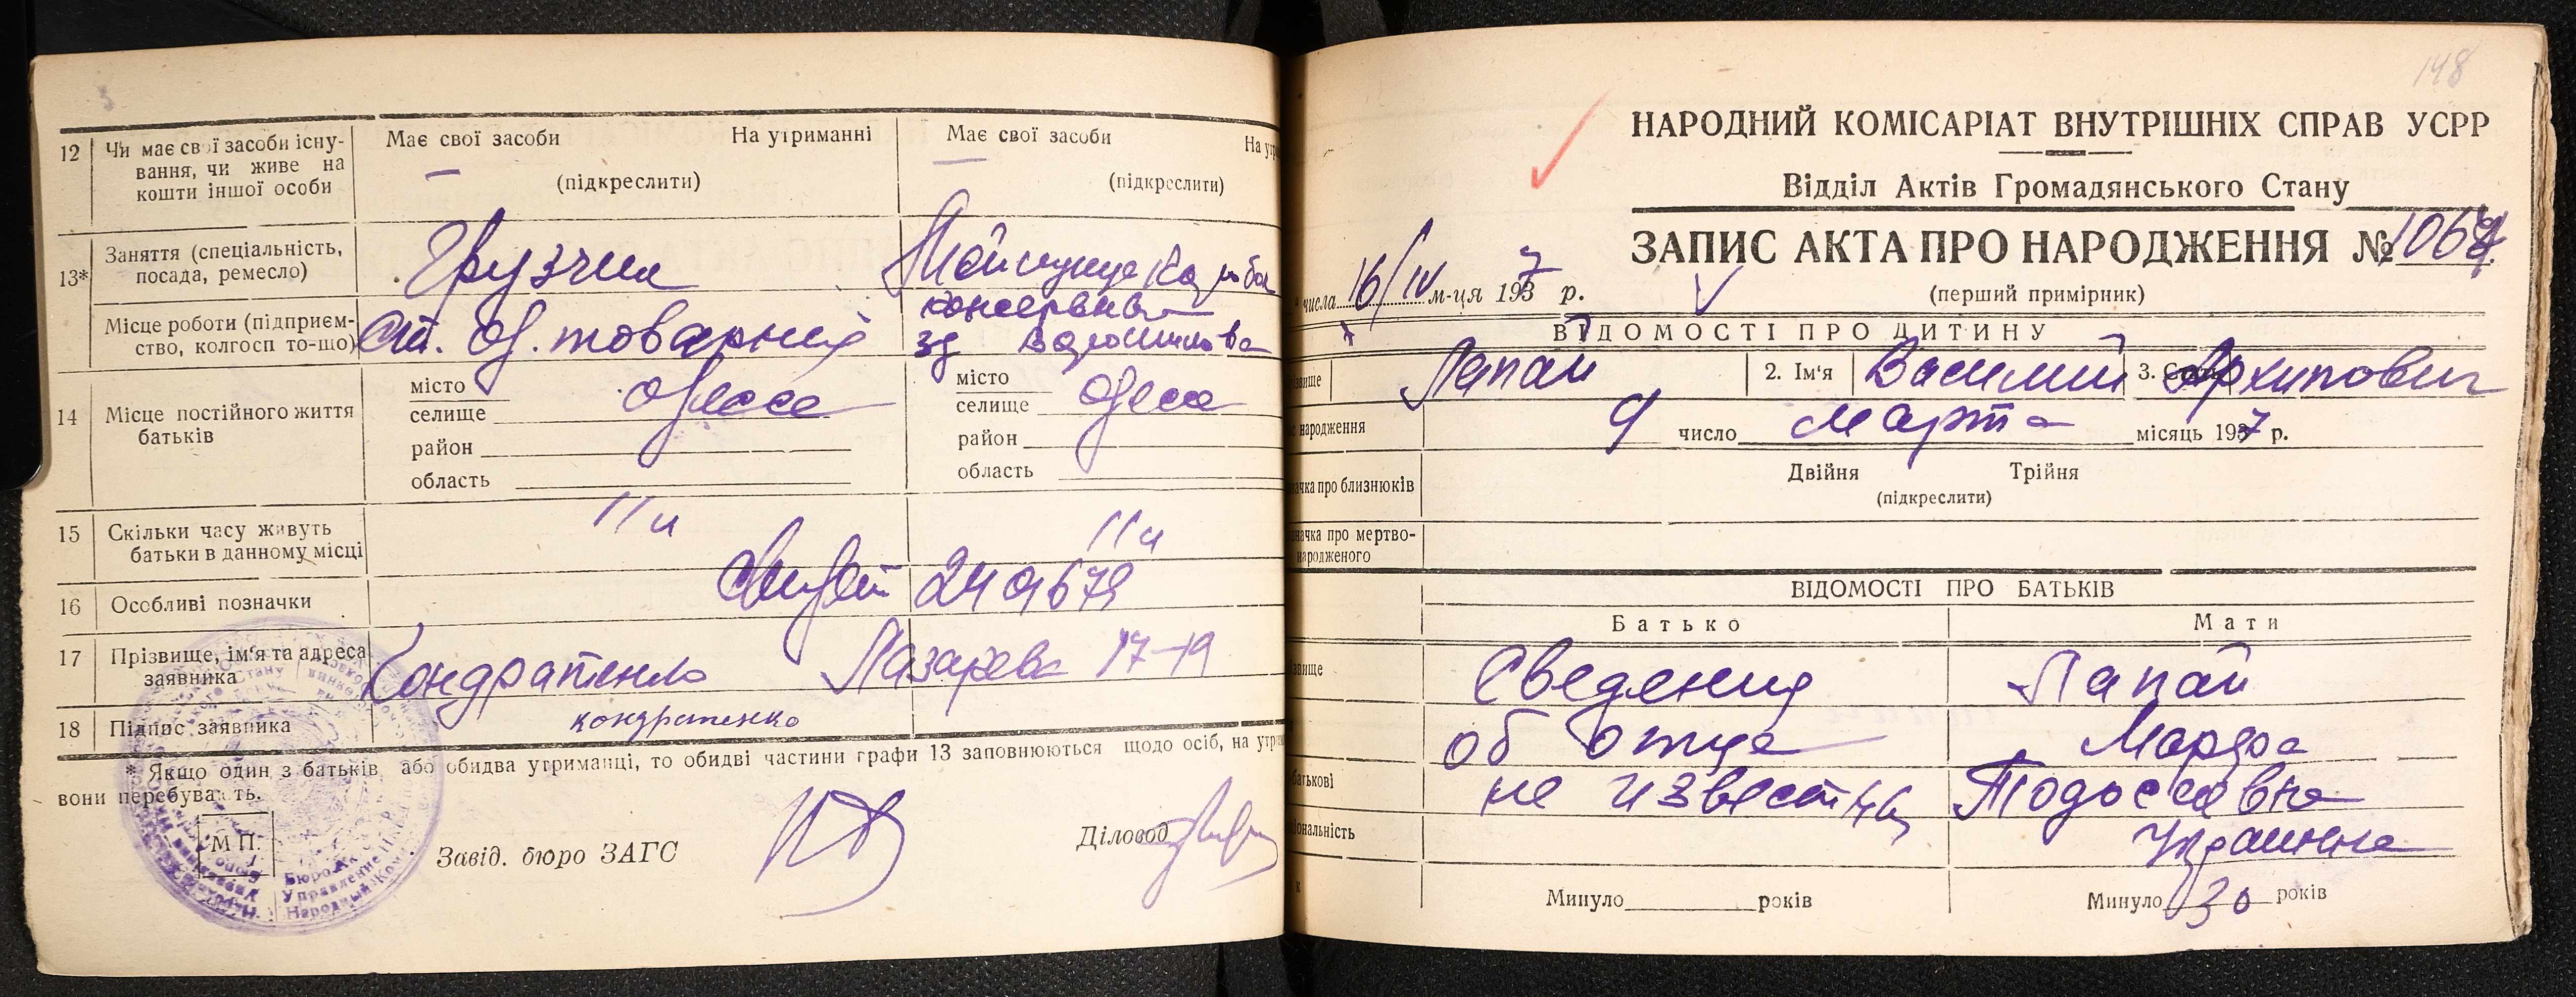 12 Чи має свої засоби існування, чи живе на кошти іншої особи
Має свої засоби На утриманні
(підкреслити)
Має свої засоби На утри
(підкреслити)
13* Заняття (спеціальність, посада, ремесло)
Грузчик
Місце роботи (підприємство, колгосп то-що)
ст. Од. товарная
консервный
зд Ворошилова
14 Місце постійного життя батьків
місто
селище
район
область
Одесса
місто
селище
район
область
Одеса
15 Скільки часу живуть батьки в данному місці
11 л
11 л
16 Особливі позначки
17 Прізвище, ім'я та адреса заявника
Кондратенко Лазарева 17-19
18 Підпис заявника
кондратенко
* Якщо один з батьків, або обидва утриманці, то обидві частини графи 13 заповнюються щодо осіб, на утри
вони перебувають.
М П.
Завід. бюро ЗАГС
Діловод
148
НАРОДНИЙ КОМІСАРІАТ ВНУТРІШНІХ СПРАВ УСРР
Відділ Актів Громадянського Стану
ЗАПИС АКТА ПРО НАРОДЖЕННЯ №
(перший примірник)
числа 16/IV м-ця 1937 р.
ВІДОМОСТІ ПРО ДИТИНУ
звище Лапай 2. Ім'я Василий 3. Архипович
народження 9 число Марта місяць 1937 р.
начка про близнюків
Двійня Трійня
(підкреслити)
начка про мертвонародженого
ВІДОМОСТІ ПРО БАТЬКІВ
Батько Мати
звище Сведения Лапай
об отце Марфа
батькові не известны Тодосеевна
ціональність Украинка
Минуло років
Минуло 30 років